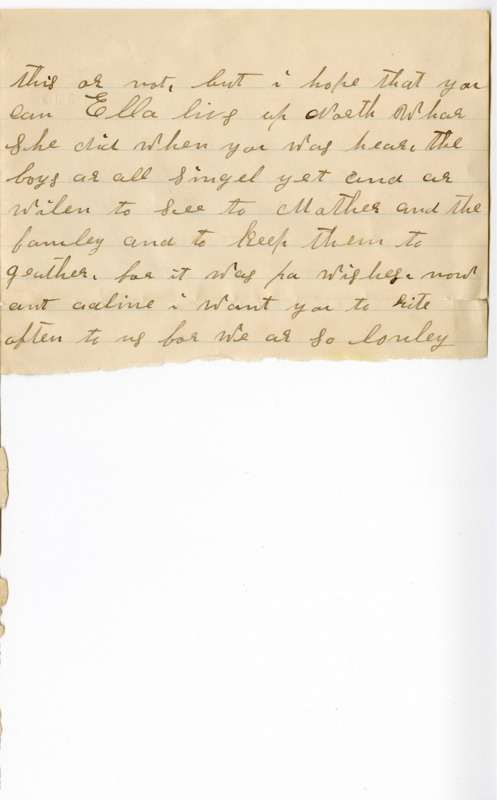 this or not, but i hope that you
can Ella livs up North Whar
She did when you was hear, the
boys ar all Singel yet and ar
wilen to See to Mother and the
famley and to Keep them to
geather. for it was pa wishes. now
ant adline i want you to rite
often to us for We ar So lonley